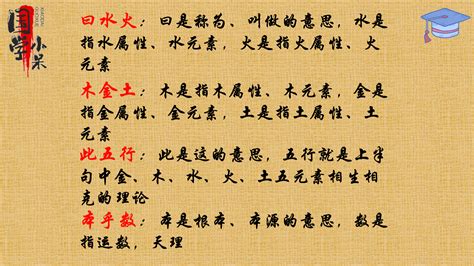 国学
小呆
曰水火：曰是称为、叫做的意思，水是
指水属性、水元素，火是指火属性、火
元素
木金土：木是指木属性、木元素，金是
指金属性、金元素，土是指土属性、土
元素
此五行：此是这的意思，五行就是上半
句中金、木、水、火、土五元素相生相
克的理论
本乎数：本是根本、本源的意思，数是
指运数，天理